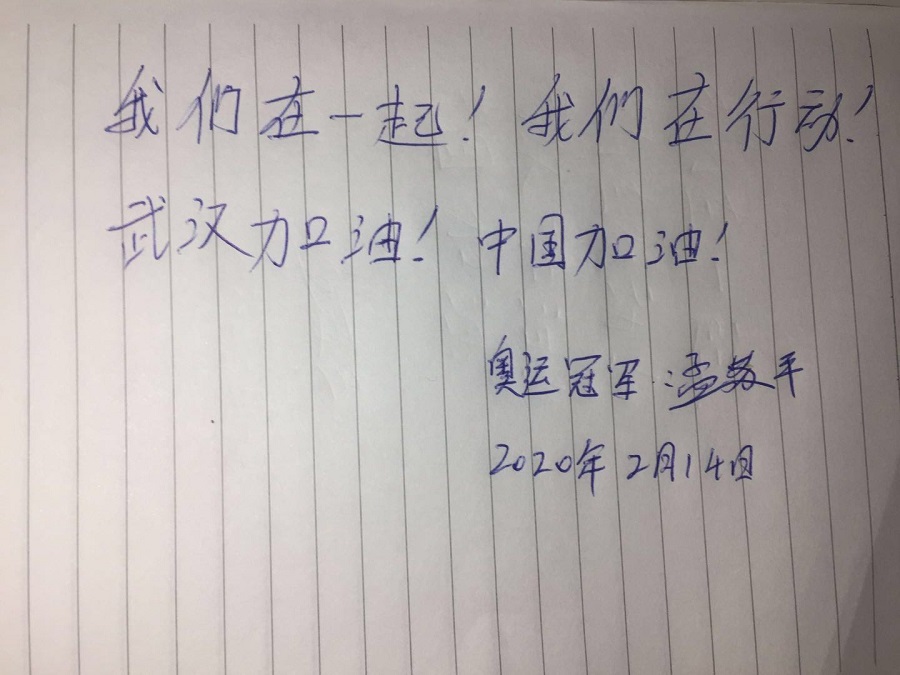 我们在一起！我们在行动！
武汉加油！中国加油！
奥运冠军：孟苏平
2020年2月14日